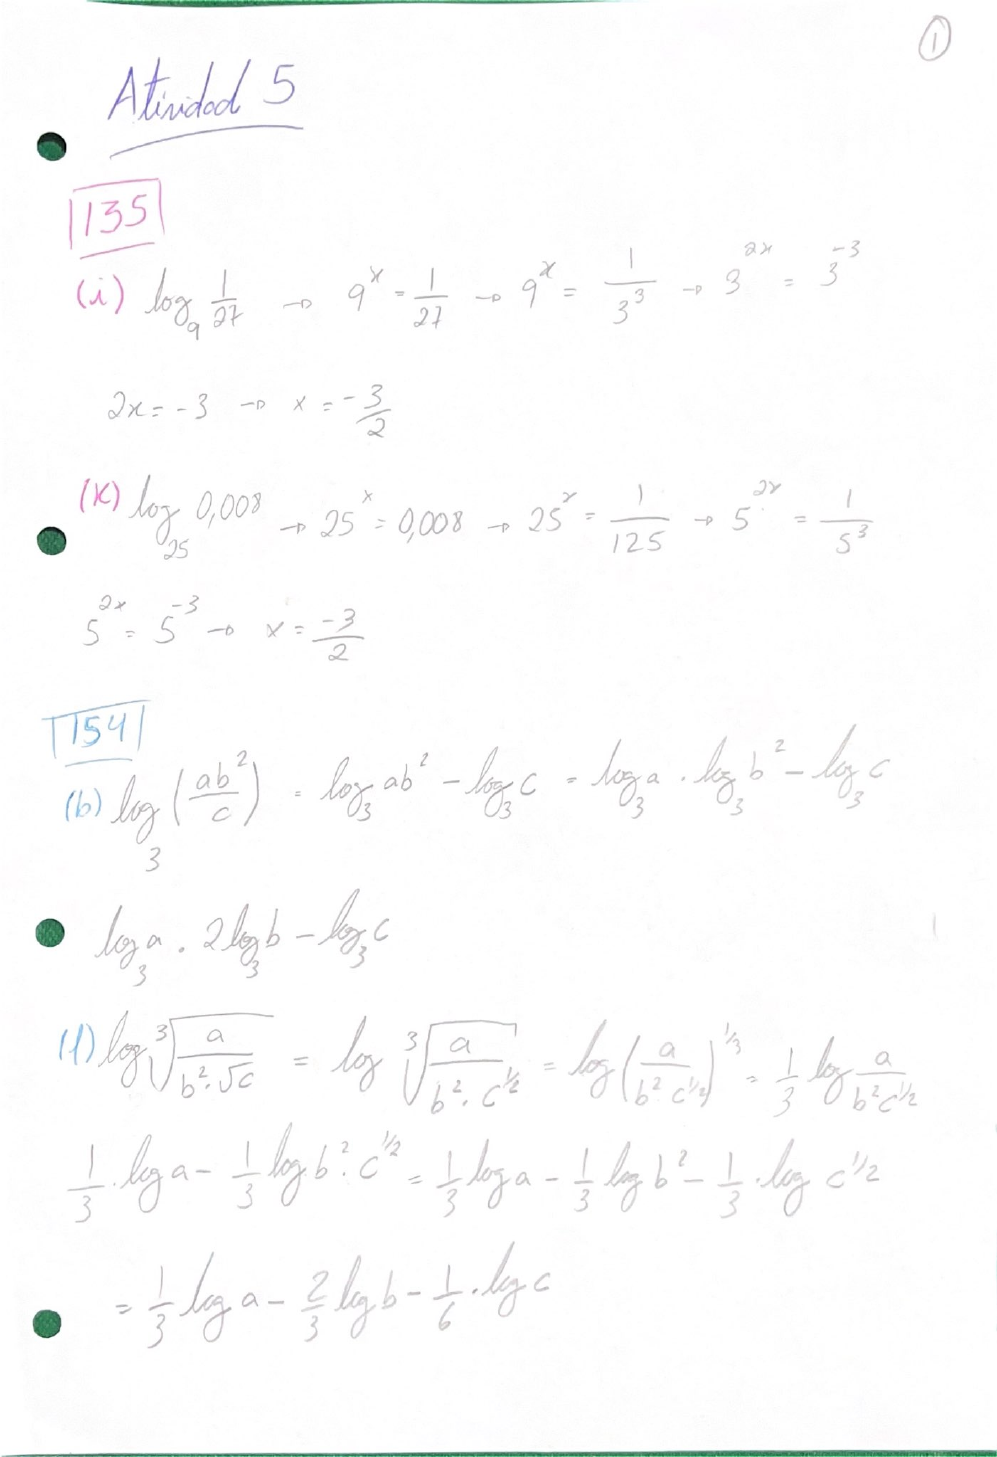 1
Atividad 5
135
(i) log₉ 1/27 → 9^x = 1/27 → 9^x = 1/3³ → 3^2x = 3^-3
2x = -3 → x = -3/2
(K) log₂₅ 0,008 → 25^x = 0,008 → 25^x = 1/125 → 5^2x = 1/5³
5^2x = 5^-3 → x = -3/2
154
(b) log₃ (ab²/c) = log₃ ab² - log₃ c = log₃ a . log₃ b² - log₃ c
log₃ a . 2 log₃ b - log₃ c
(f) log ³√(a/(b².√c)) = log ³√(a/(b².c^1/2)) = log (a/(b² c^1/2))^1/3 = 1/3 log a/(b²c^1/2)
1/3 . log a - 1/3 log b².c^1/2 = 1/3 log a - 1/3 log b² - 1/3 . log c^1/2
= 1/3 log a - 2/3 log b - 1/6 . log c